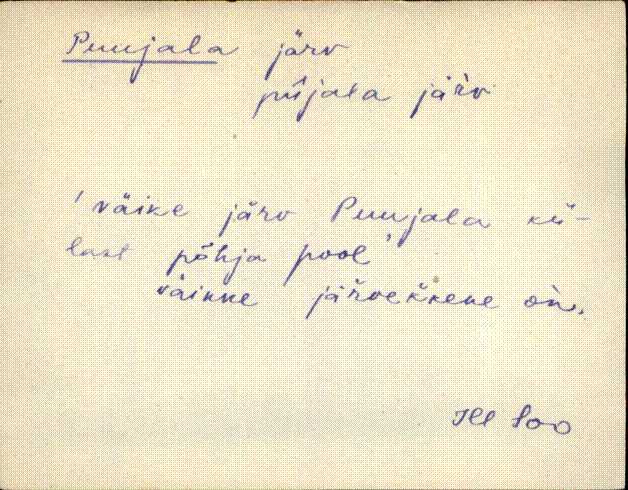 Puujala järv
pūjala järv
'väike järv Puujala kü-
last põhja pool'
väinne järvekkene on.
Ill Soo